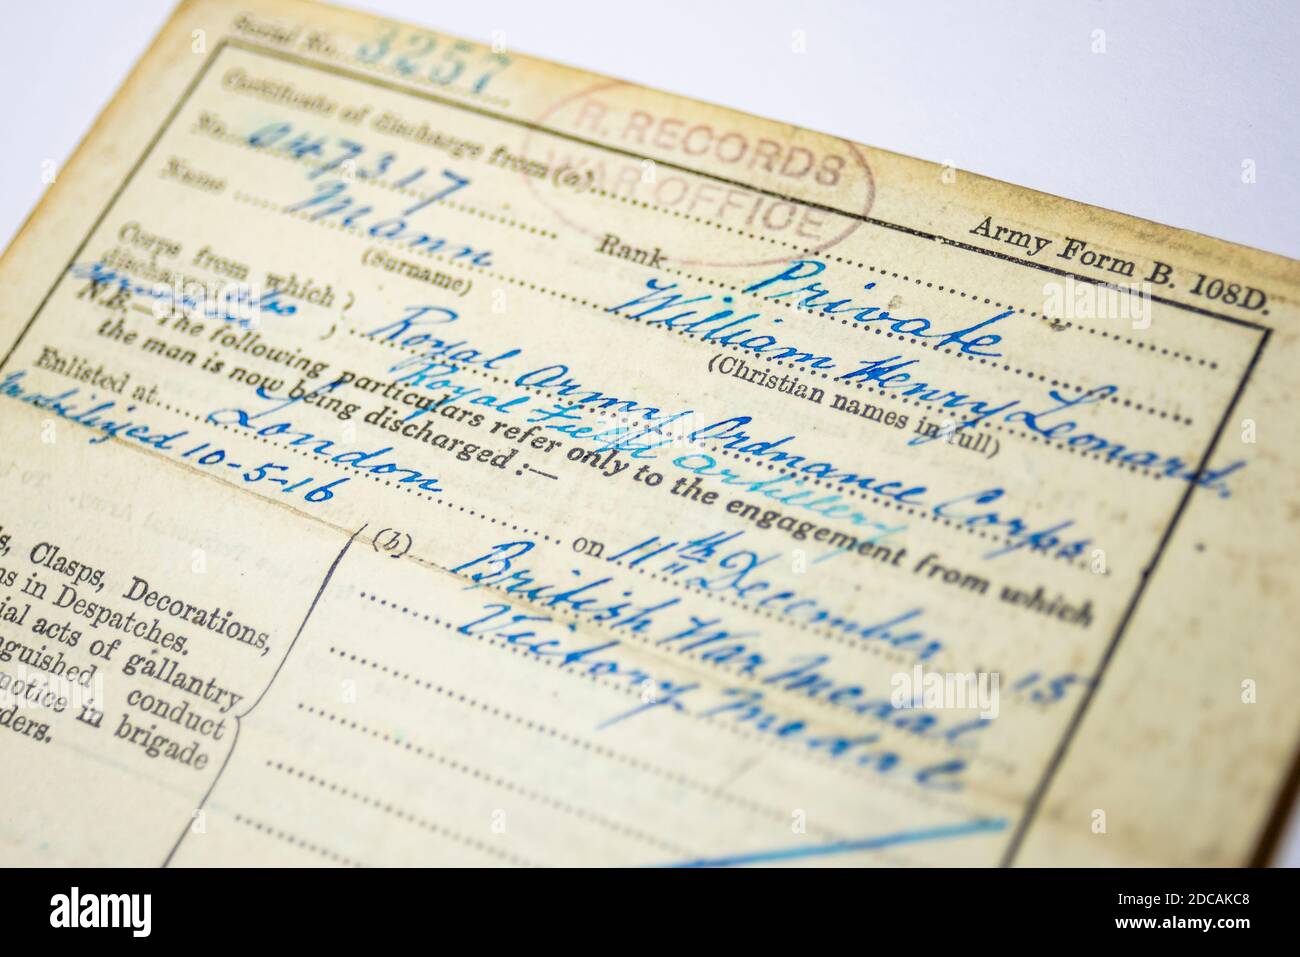 Serial No. 3257
R. RECORDS
WAR OFFICE
Army Form B. 108D.
Certificate of discharge from (a)
No. 047317 Rank Private
Name Mann William Henry Leonard.
(Surname) (Christian names in full)
Corps from which
discharged also
served in
Royal Army Ordnance Corps
Royal Field Artillery
N.B.—The following particulars refer only to the engagement from which
the man is now being discharged :—
Enlisted at London on 11th December 1915
Mobilized 10-5-16
s, Clasps, Decorations,
ns in Despatches.
ial acts of gallantry
nguished conduct
notice in brigade
ders.
(b) British War Medal
Victory Medal
alamy
Image ID: 2DCAKC8
www.alamy.com